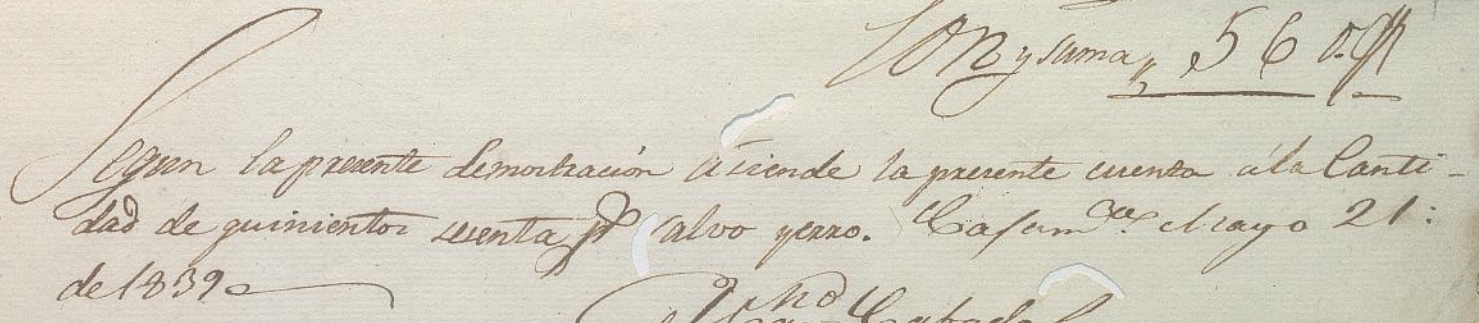 Son y suma, 560. p.s
Segun la presente demostración asiende la presente cuenta á la Canti-
dad de quinientos sesenta p.s salvo yerro. Mayo 21:
de 1839